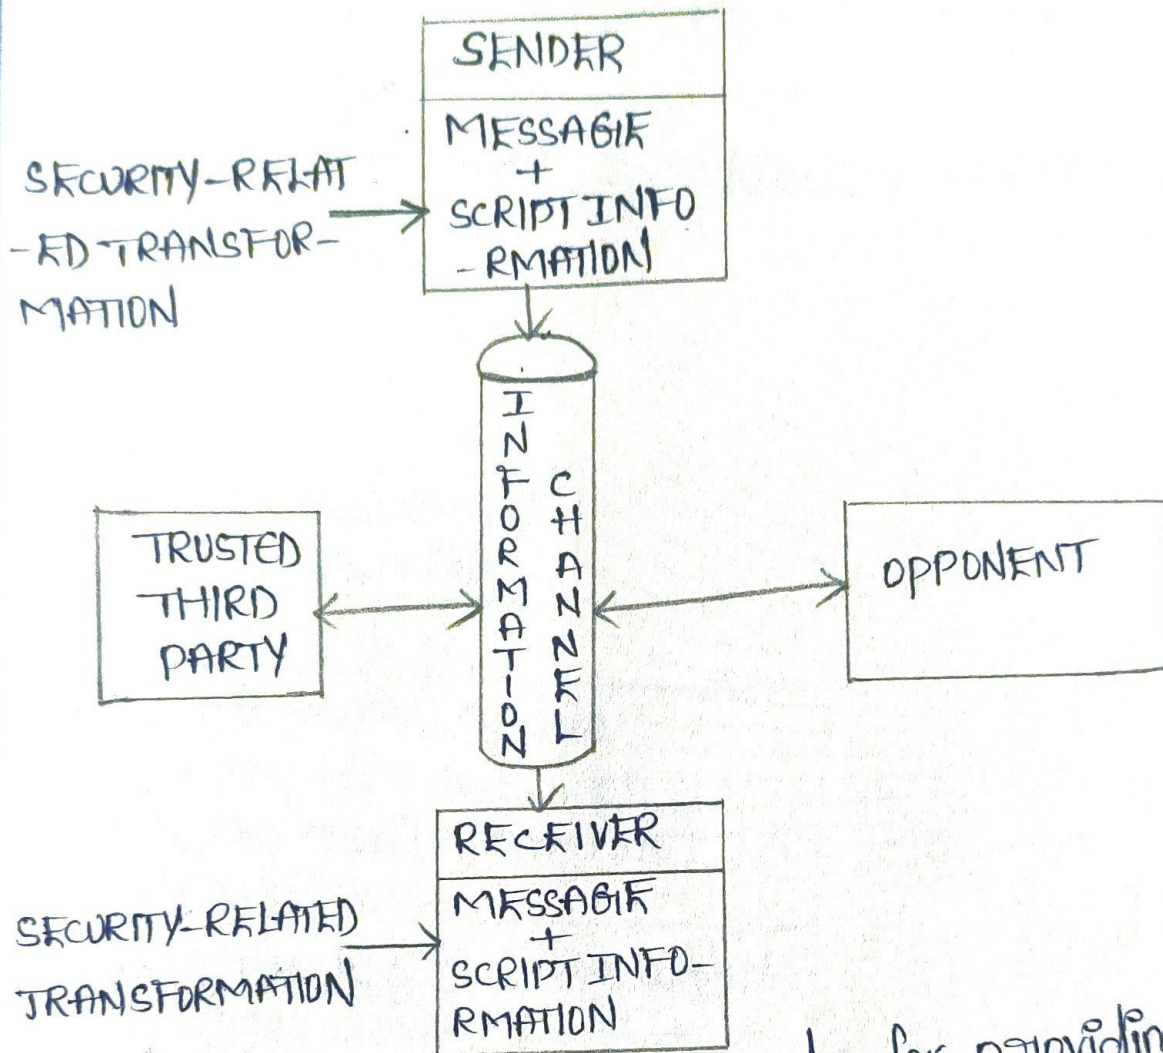 SENDER
MESSAGE
+
SCRIPT INFO
-RMATION
SECURITY-RELAT
-ED TRANSFOR-
MATION
INFORMATION
CHANNEL
TRUSTED
THIRD
PARTY
OPPONENT
RECEIVER
MESSAGE
+
SCRIPT INFO-
RMATION
SECURITY-RELATED
TRANSFORMATION
for